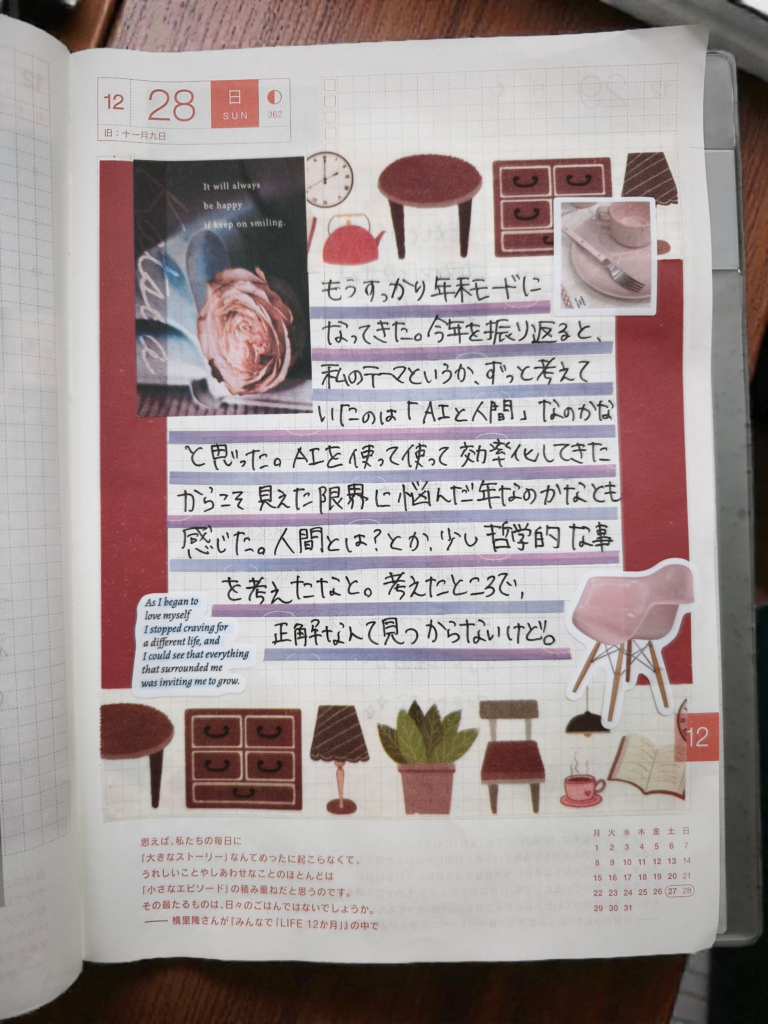 12 28 日
SUN 362
旧：十一月九日
It will always
be happy
if keep on smiling.
もうすっかり年末モードに
なってきた。今年を振り返ると、
私のテーマというか、ずっと考えて
いたのは「AIと人間」なのかな
と思った。AIを使って使って効率化してきた
からこそ見えた限界に悩んだ年なのかなとも
感じた。人間とは？とか、少し哲学的な事
を考えたなと。考えたところで、
正解なんて見つからないけど。
As I began to
love myself
I stopped craving for
a different life, and
I could see that everything
that surrounded me
was inviting me to grow.
12
思えば、私たちの毎日に
「大きなストーリー」なんてめったに起こらなくて、
うれしいことやしあわせなことのほとんどは
「小さなエピソード」の積み重ねだと思うのです。
その最たるものは、日々のごはんではないでしょうか。
──横里隆さんが『みんなで「LIFE 12か月」』の中で
月 火 水 木 金 土 日
1 2 3 4 5 6 7
8 9 10 11 12 13 14
15 16 17 18 19 20 21
22 23 24 25 26 27 28
29 30 31